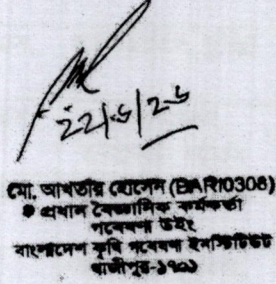 মো. আখতার হোসেন (BARI0308)
প্রধান বৈজ্ঞানিক কর্মকর্তা
গবেষণা উইং
বাংলাদেশ কৃষি গবেষণা ইনস্টিটিউট
গাজীপুর-১৭০১